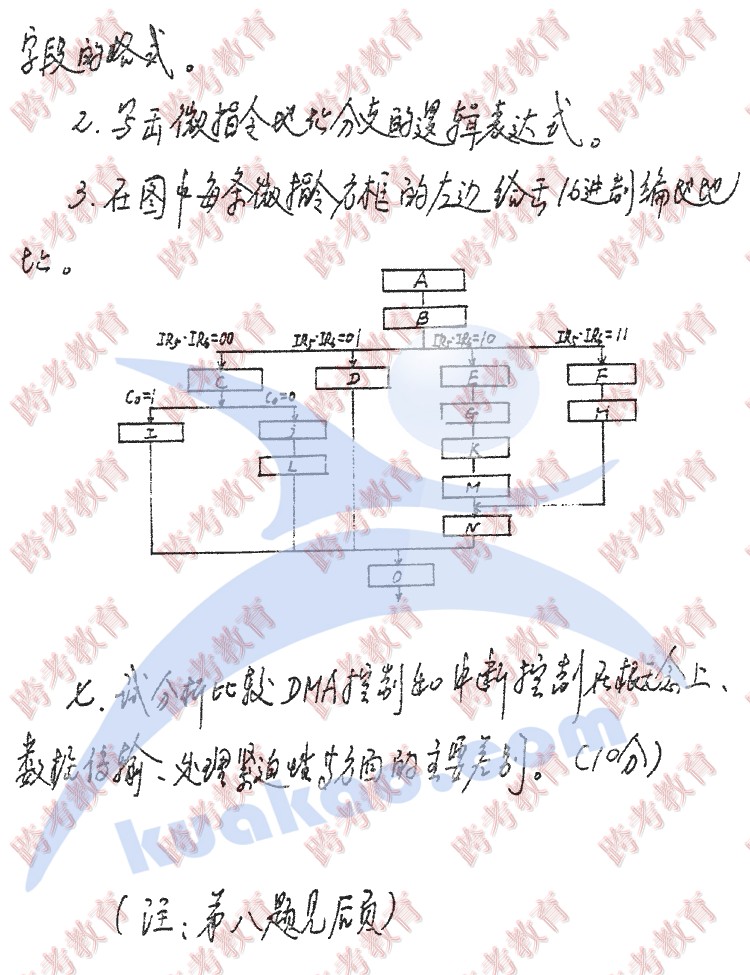 字段的格式。
2. 写出微指令地址分支的逻辑表达式。
3. 在图中每条微指令方框的左边给出16进制编地地
址。
A
B
IR5·IR6=00 IR5·IR6=01 IR5·IR6=10 IR5·IR6=11
C D E F
C0=1 C0=0 G H
I J K
L M
N
O
七. 试分析比较DMA控制和中断控制在概念上、
数据传输、处理紧迫性等方面的主要差别。(10分)
(注:第八题见后页)
kuakao.com
跨考教育